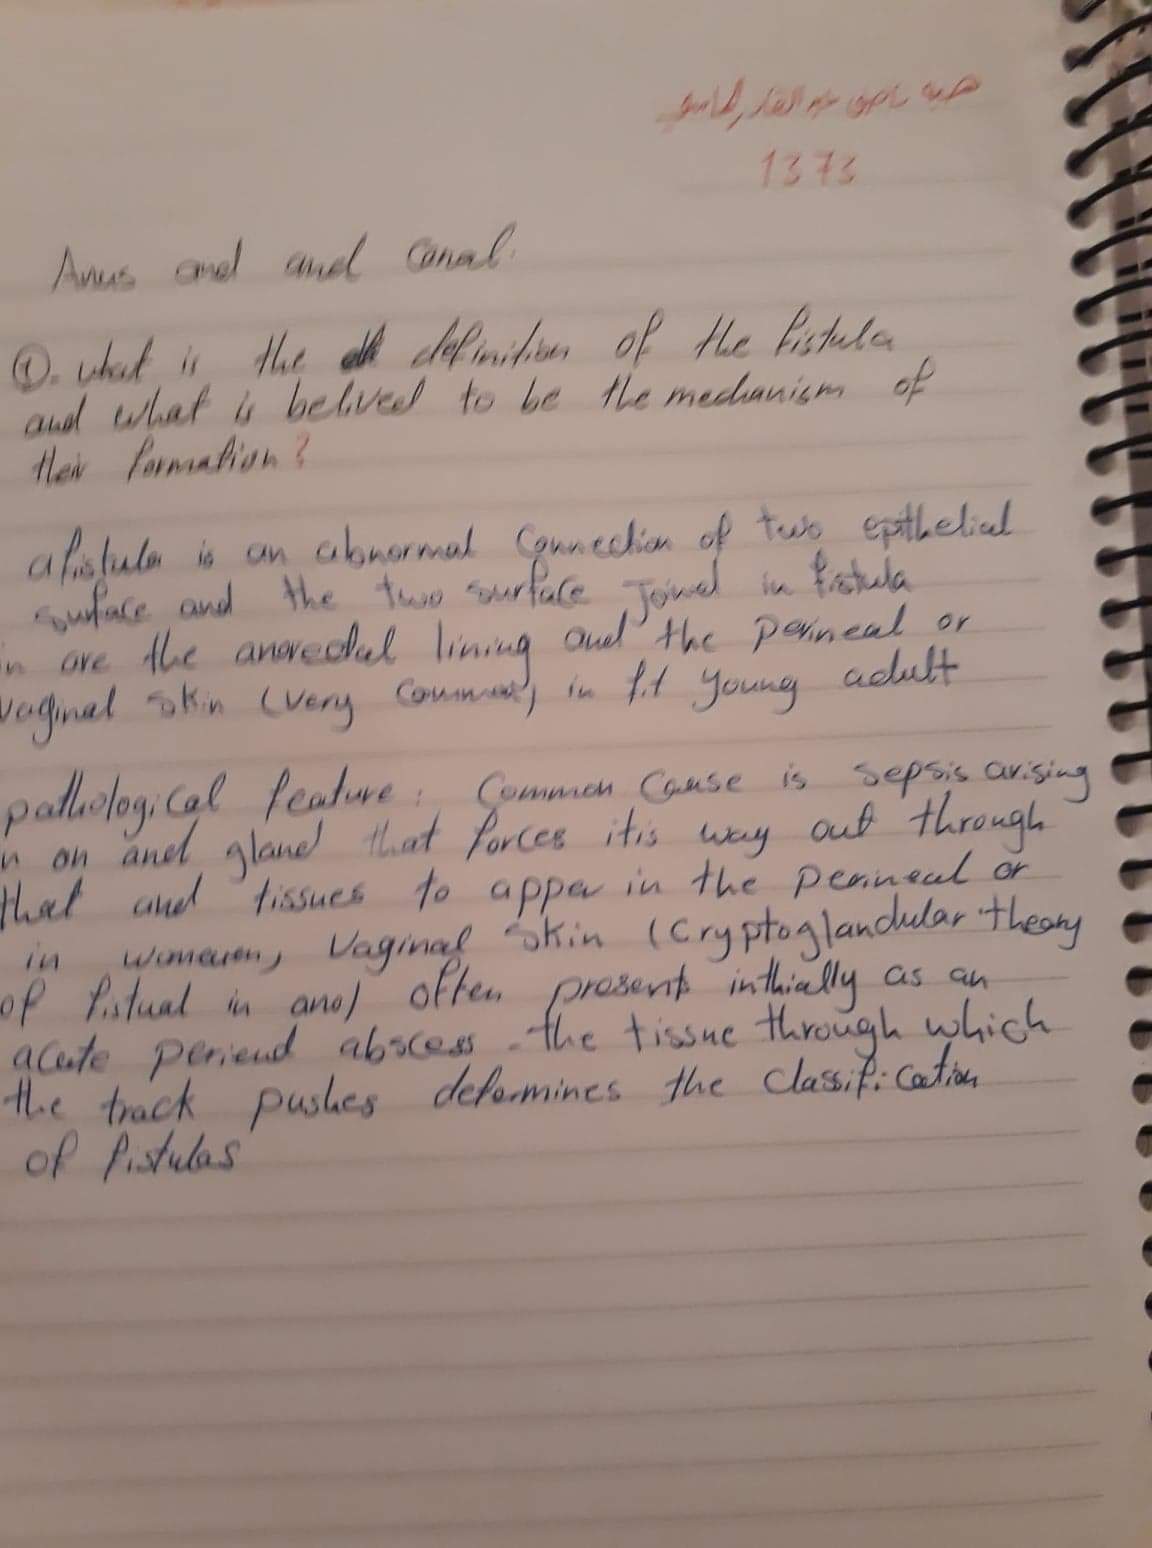 1373
Anus and and Canal.
①. what is the definition of the fistula
and what is belived to be the mechanism of
their formation?
a fistula is an abnormal Connection of two epithelial
surface and the two surface Joined in fistula
in are the anorectal lining and the perineal or
vaginal skin (very common) in fit young adult
pathological feature: Common Cause is sepsis arising
n on and gland that forces itis way out through
that and tissues to appea in the perineal or
in womenen, Vaginal Skin (Cryptoglandular theory
of fistual in ano) often presents inthially as an
acute periend abscess - the tissue through which
the track pushes determines the Classification
of fistulas